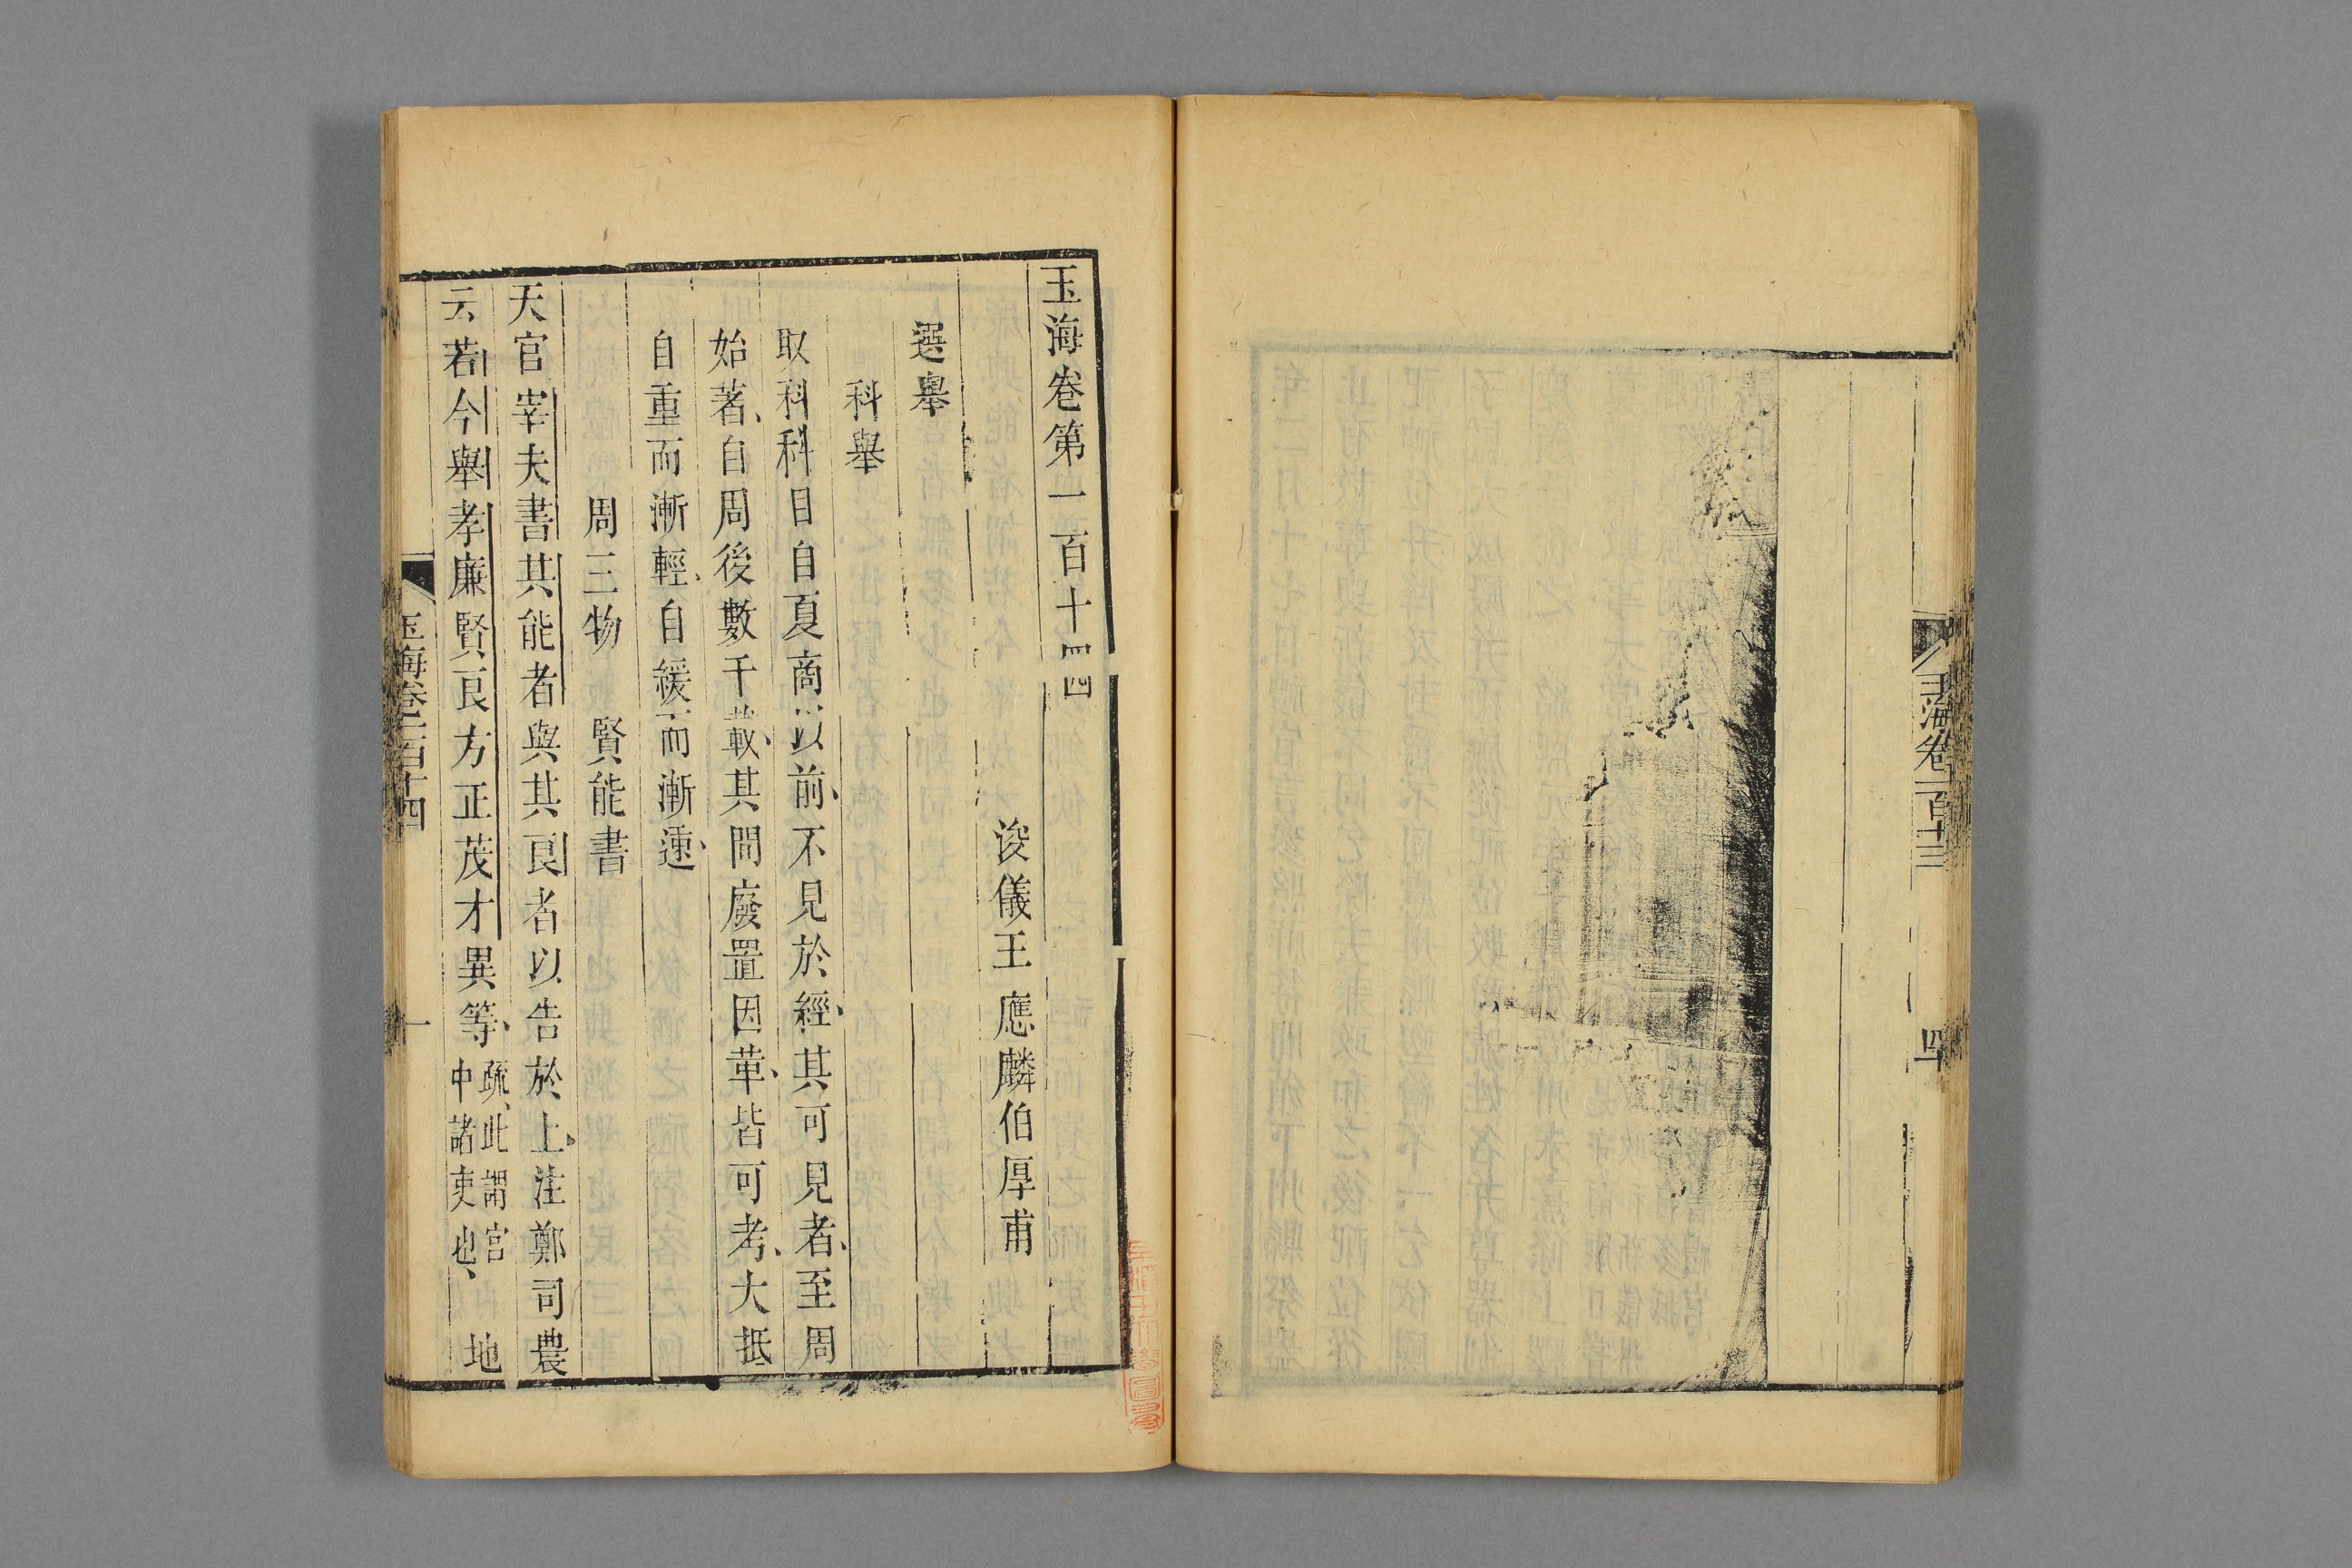 玉海卷一百十三
四
玉海卷第一百十四
浚儀王應麟伯厚甫
選舉
科舉
取科科目自夏商以前不見於經其可見者至周
始著自周後數千載其間廢置因革皆可考大抵
自重而漸輕自緩而漸速
周三物 賢能書
天官宰夫書其能者與其良者以告於上注鄭司農
云若今舉孝廉賢良方正茂才異等疏此謂官中諸吏也 地
玉海卷一百十四
一